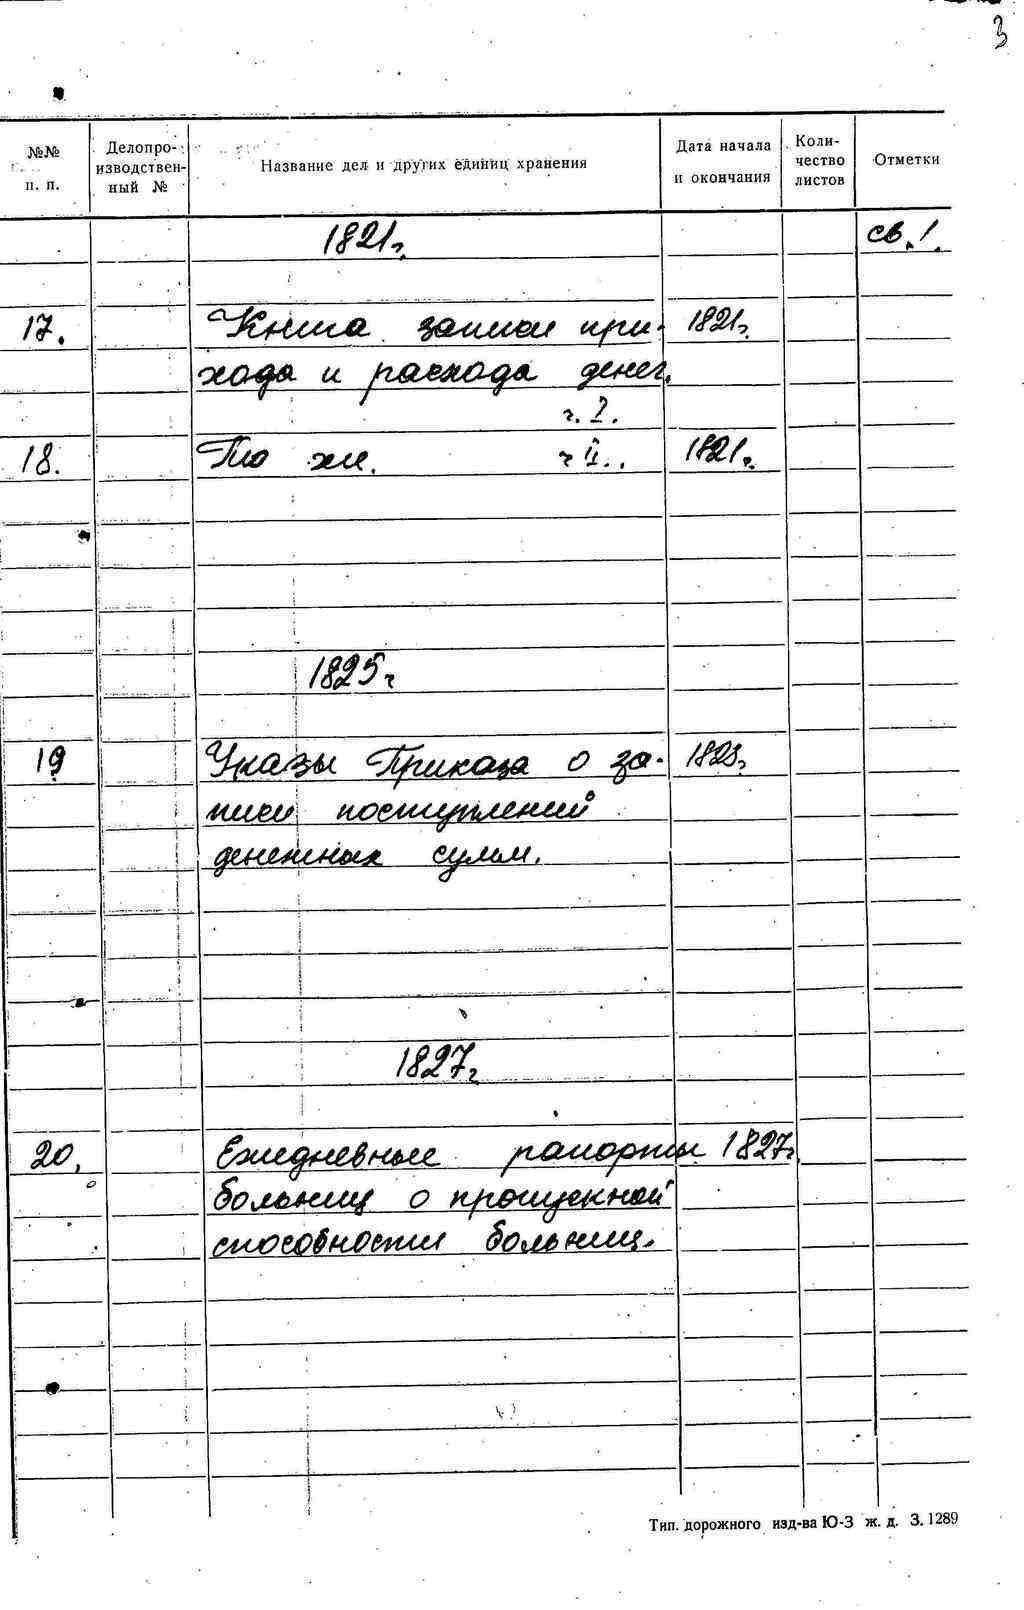 3
№№ п. п.
Делопро-
изводствен-
ный №
Название дел и других единиц хранения
Дата начала
и окончания
Коли-
чество
листов
Отметки
1821г.
св. 1.
17.
Книга записи при-
1821г.
хода и расхода денег.
ч. I.
18.
То же.
ч II.
1821г.
1825г
19
Указы Приказа о за-
1825г.
писи поступлений
денежных сумм.
1827г
20.
Ежедневные рапорты
1827г.
больниц о пропускной
способности больниц.
Тип. дорожного изд-ва Ю-З ж. д. З. 1289